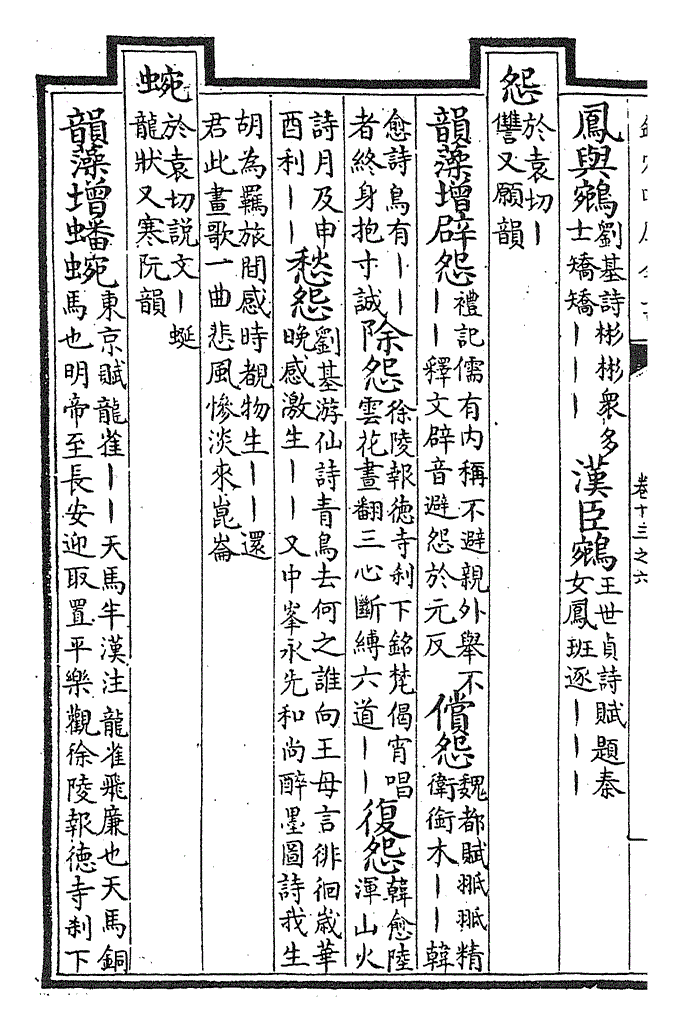 卷十三之六
鳳與鵷劉基詩彬彬衆多士矯矯丨丨丨漢臣鵷王世貞詩賦題秦女鳳班逐丨丨丨
怨於袁切丨讐又願韻
韻藻增辟怨禮記儒有内稱不避親外舉不丨丨釋文辟音避怨於元反償怨魏都賦䎗䎗精衛銜木丨丨韓
愈詩鳥有丨丨者終身抱寸誠除怨徐陵報徳寺刹下銘梵偈宵唱雲花晝翻三心斷縛六道丨丨復怨韓愈陸渾山火
詩月及申酉利丨丨愁怨劉基游仙詩青鳥去何之誰向王母言徘徊嵗華晚感激生丨丨又中峯永先和尚醉墨圖詩我生
胡為羈旅間感時覩物生丨丨還君此晝歌一曲悲風慘淡來崑崙
蜿於袁切説文丨蜒龍狀又寒阮韻
韻藻增蟠蜿東京賦龍雀丨丨天馬半漢注龍雀飛廉也天馬銅馬也明帝至長安迎取置平樂觀徐陵報徳寺刹下